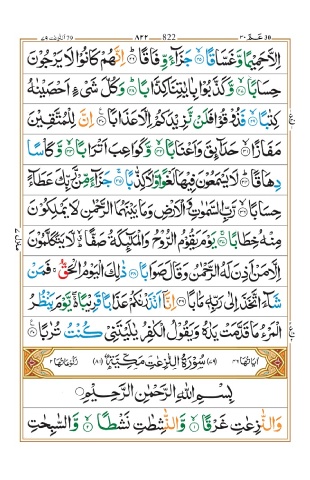 ٨٢٢ 822
اِلَّا حَمِيْمًا وَّغَسَّاقًا ۙ﴿۲۵﴾ جَزَآءً وِّفَاقًا ؕ﴿۲۶﴾ اِنَّهُمْ كَانُوْا لَا يَرْجُوْنَ
حِسَابًا ۙ﴿۲۷﴾ وَّكَذَّبُوْا بِاٰيٰتِنَا كِذَّابًا ؕ﴿۲۸﴾ وَكُلَّ شَىْءٍ اَحْصَيْنٰهُ
كِتٰبًا ۙ﴿۲۹﴾ فَذُوْقُوْا فَلَنْ نَّزِيْدَكُمْ اِلَّا عَذَابًا ﴿۳۰﴾ اِنَّ لِلْمُتَّقِيْنَ
مَفَازًا ۙ﴿۳۱﴾ حَدَآئِقَ وَاَعْنَابًا ۙ﴿۳۲﴾ وَّكَوَاعِبَ اَتْرَابًا ۙ﴿۳۳﴾ وَّكَاْسًا
دِهَاقًا ؕ﴿۳۴﴾ لَا يَسْمَعُوْنَ فِيْهَا لَغْوًا وَّلَا كِذّٰبًا ۚ﴿۳۵﴾ جَزَآءً مِّنْ رَّبِّكَ عَطَآءً
حِسَابًا ۙ﴿۳۶﴾ رَّبِّ السَّمٰوٰتِ وَالْاَرْضِ وَمَا بَيْنَهُمَا الرَّحْمٰنِ لَا يَمْلِكُوْنَ
مِنْهُ خِطَابًا ۚ﴿۳۷﴾ يَوْمَ يَقُوْمُ الرُّوْحُ وَالْمَلٰٓئِكَةُ صَفًّا ؕۙ لَّا يَتَكَلَّمُوْنَ
اِلَّا مَنْ اَذِنَ لَهُ الرَّحْمٰنُ وَقَالَ صَوَابًا ﴿۳۸﴾ ذٰلِكَ الْيَوْمُ الْحَقُّ ۚ فَمَنْ
شَآءَ اتَّخَذَ اِلٰى رَبِّهٖ مَاٰبًا ﴿۳۹﴾ اِنَّاۤ اَنْذَرْنٰكُمْ عَذَابًا قَرِيْبًا ۖۚ يَّوْمَ يَنْظُرُ
الْمَرْءُ مَا قَدَّمَتْ يَدٰهُ وَيَقُوْلُ الْكٰفِرُ يٰلَيْتَنِىْ كُنْتُ تُرٰبًا ﴿۴۰﴾
سُوْرَةُ النّٰزِعٰتِ مَكِّيَّةٌ
بِسْمِ اللهِ الرَّحْمٰنِ الرَّحِيْمِ
وَالنّٰزِعٰتِ غَرْقًا ۙ﴿۱﴾ وَّالنّٰشِطٰتِ نَشْطًا ۙ﴿۲﴾ وَّالسّٰبِحٰتِ